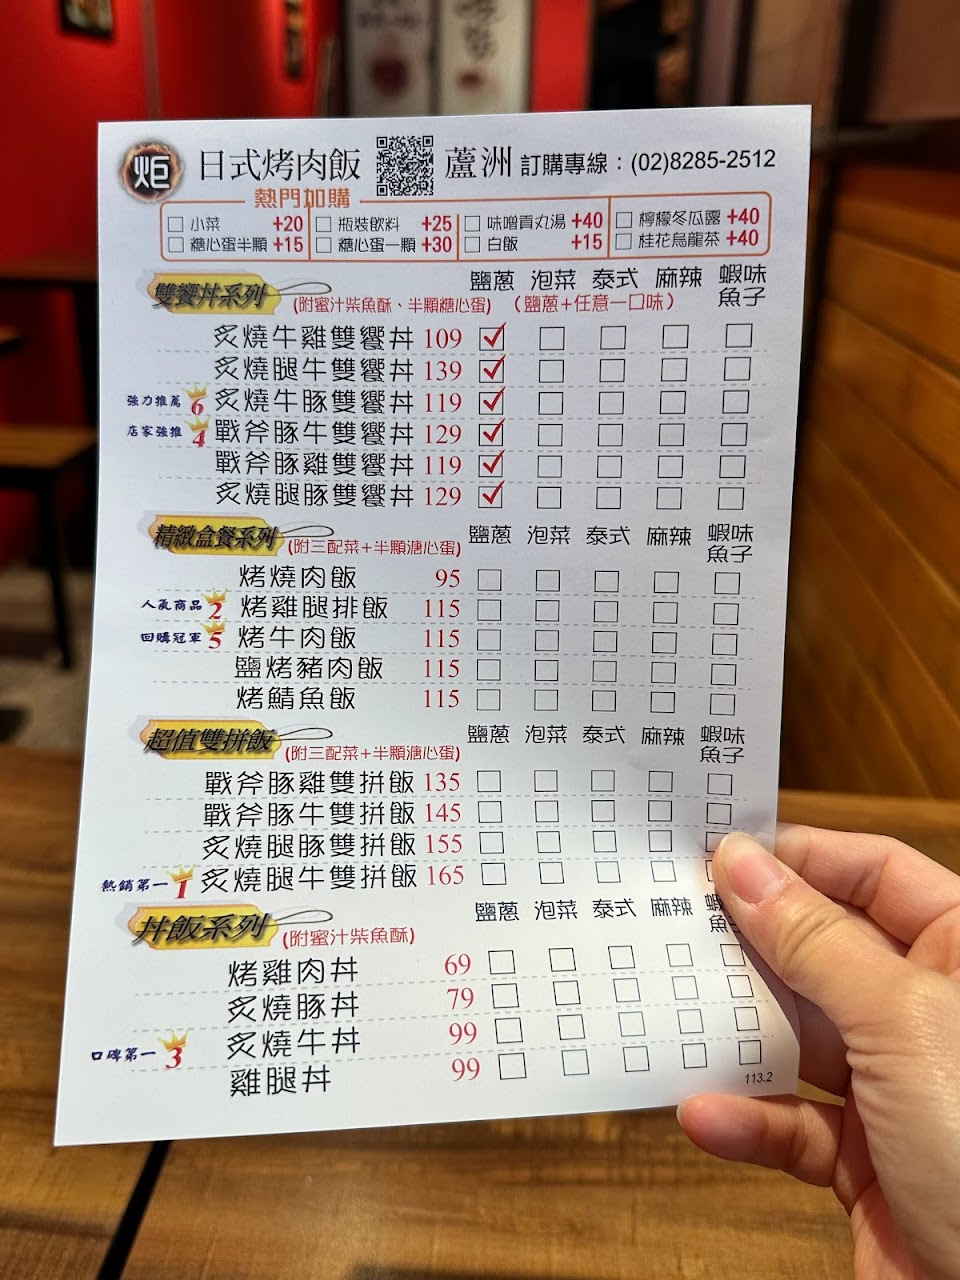 炬 日式烤肉飯 蘆洲 訂購專線：(02)8285-2512
熱門加購
小菜 +20 瓶裝飲料 +25 味噌貢丸湯 +40 檸檬冬瓜露 +40
糖心蛋半顆 +15 糖心蛋一顆 +30 白飯 +15 桂花烏龍茶 +40
雙饗丼系列 (附蜜汁柴魚酥、半顆糖心蛋) (鹽蔥+任意一口味) 鹽蔥 泡菜 泰式 麻辣 蝦味魚子
炙燒牛雞雙饗丼 109
炙燒腿牛雙饗丼 139
強力推薦 6 炙燒牛豚雙饗丼 119
店家強推 4 戰斧豚牛雙饗丼 129
戰斧豚雞雙饗丼 119
炙燒腿豚雙饗丼 129
精緻盒餐系列 (附三配菜+半顆溏心蛋) 鹽蔥 泡菜 泰式 麻辣 蝦味魚子
烤燒肉飯 95
人氣商品 2 烤雞腿排飯 115
回購冠軍 5 烤牛肉飯 115
鹽烤豬肉飯 115
烤鯖魚飯 115
超值雙拼飯 (附三配菜+半顆溏心蛋) 鹽蔥 泡菜 泰式 麻辣 蝦味魚子
戰斧豚雞雙拼飯 135
戰斧豚牛雙拼飯 145
炙燒腿豚雙拼飯 155
熱銷第一 1 炙燒腿牛雙拼飯 165
丼飯系列 (附蜜汁柴魚酥) 鹽蔥 泡菜 泰式 麻辣
烤雞肉丼 69
炙燒豚丼 79
口碑第一 3 炙燒牛丼 99
雞腿丼 99
113.2